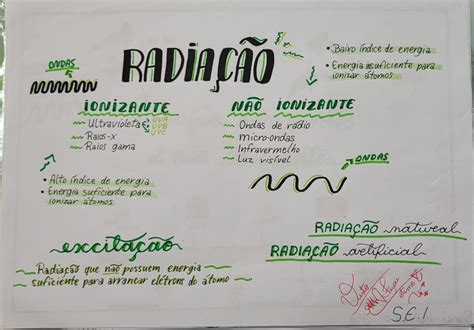 RADIAÇÃO
ONDAS
• Baixo índice de energia
• Energia suficiente para
ionizar átomos
IONIZANTE
Ultravioleta UVA
UVB
UVC
Raios-x
Raios gama
NÃO IONIZANTE
Ondas de rádio
micro-ondas
Infravermelho
Luz visível
ONDAS
• Alto índice de energia
• Energia suficiente para
ionizar átomos.
excitação
Radiação que não possuem energia
suficiente para arrancar elétrons do átomo
RADIAÇÃO natural
RADIAÇÃO artificial
S.E.1